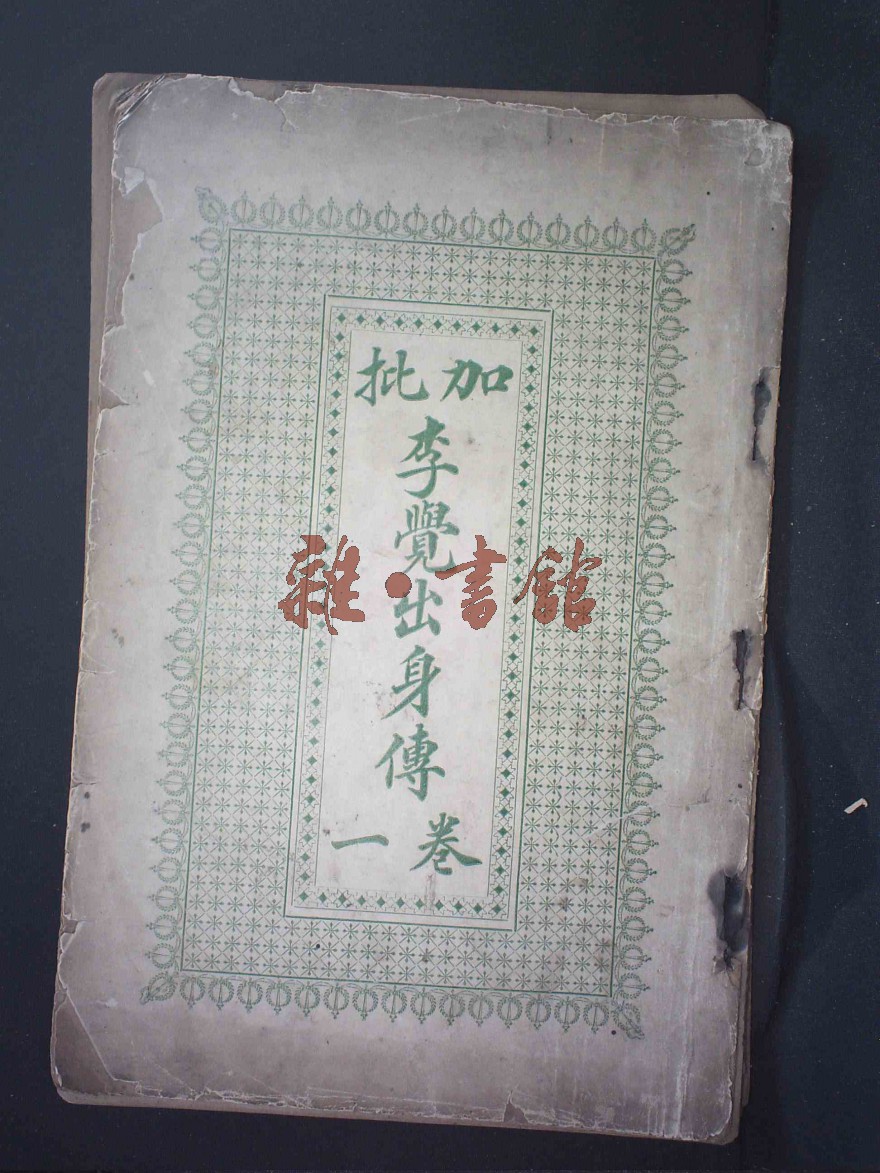 加批
李覺出身傳
卷一
雜·書館